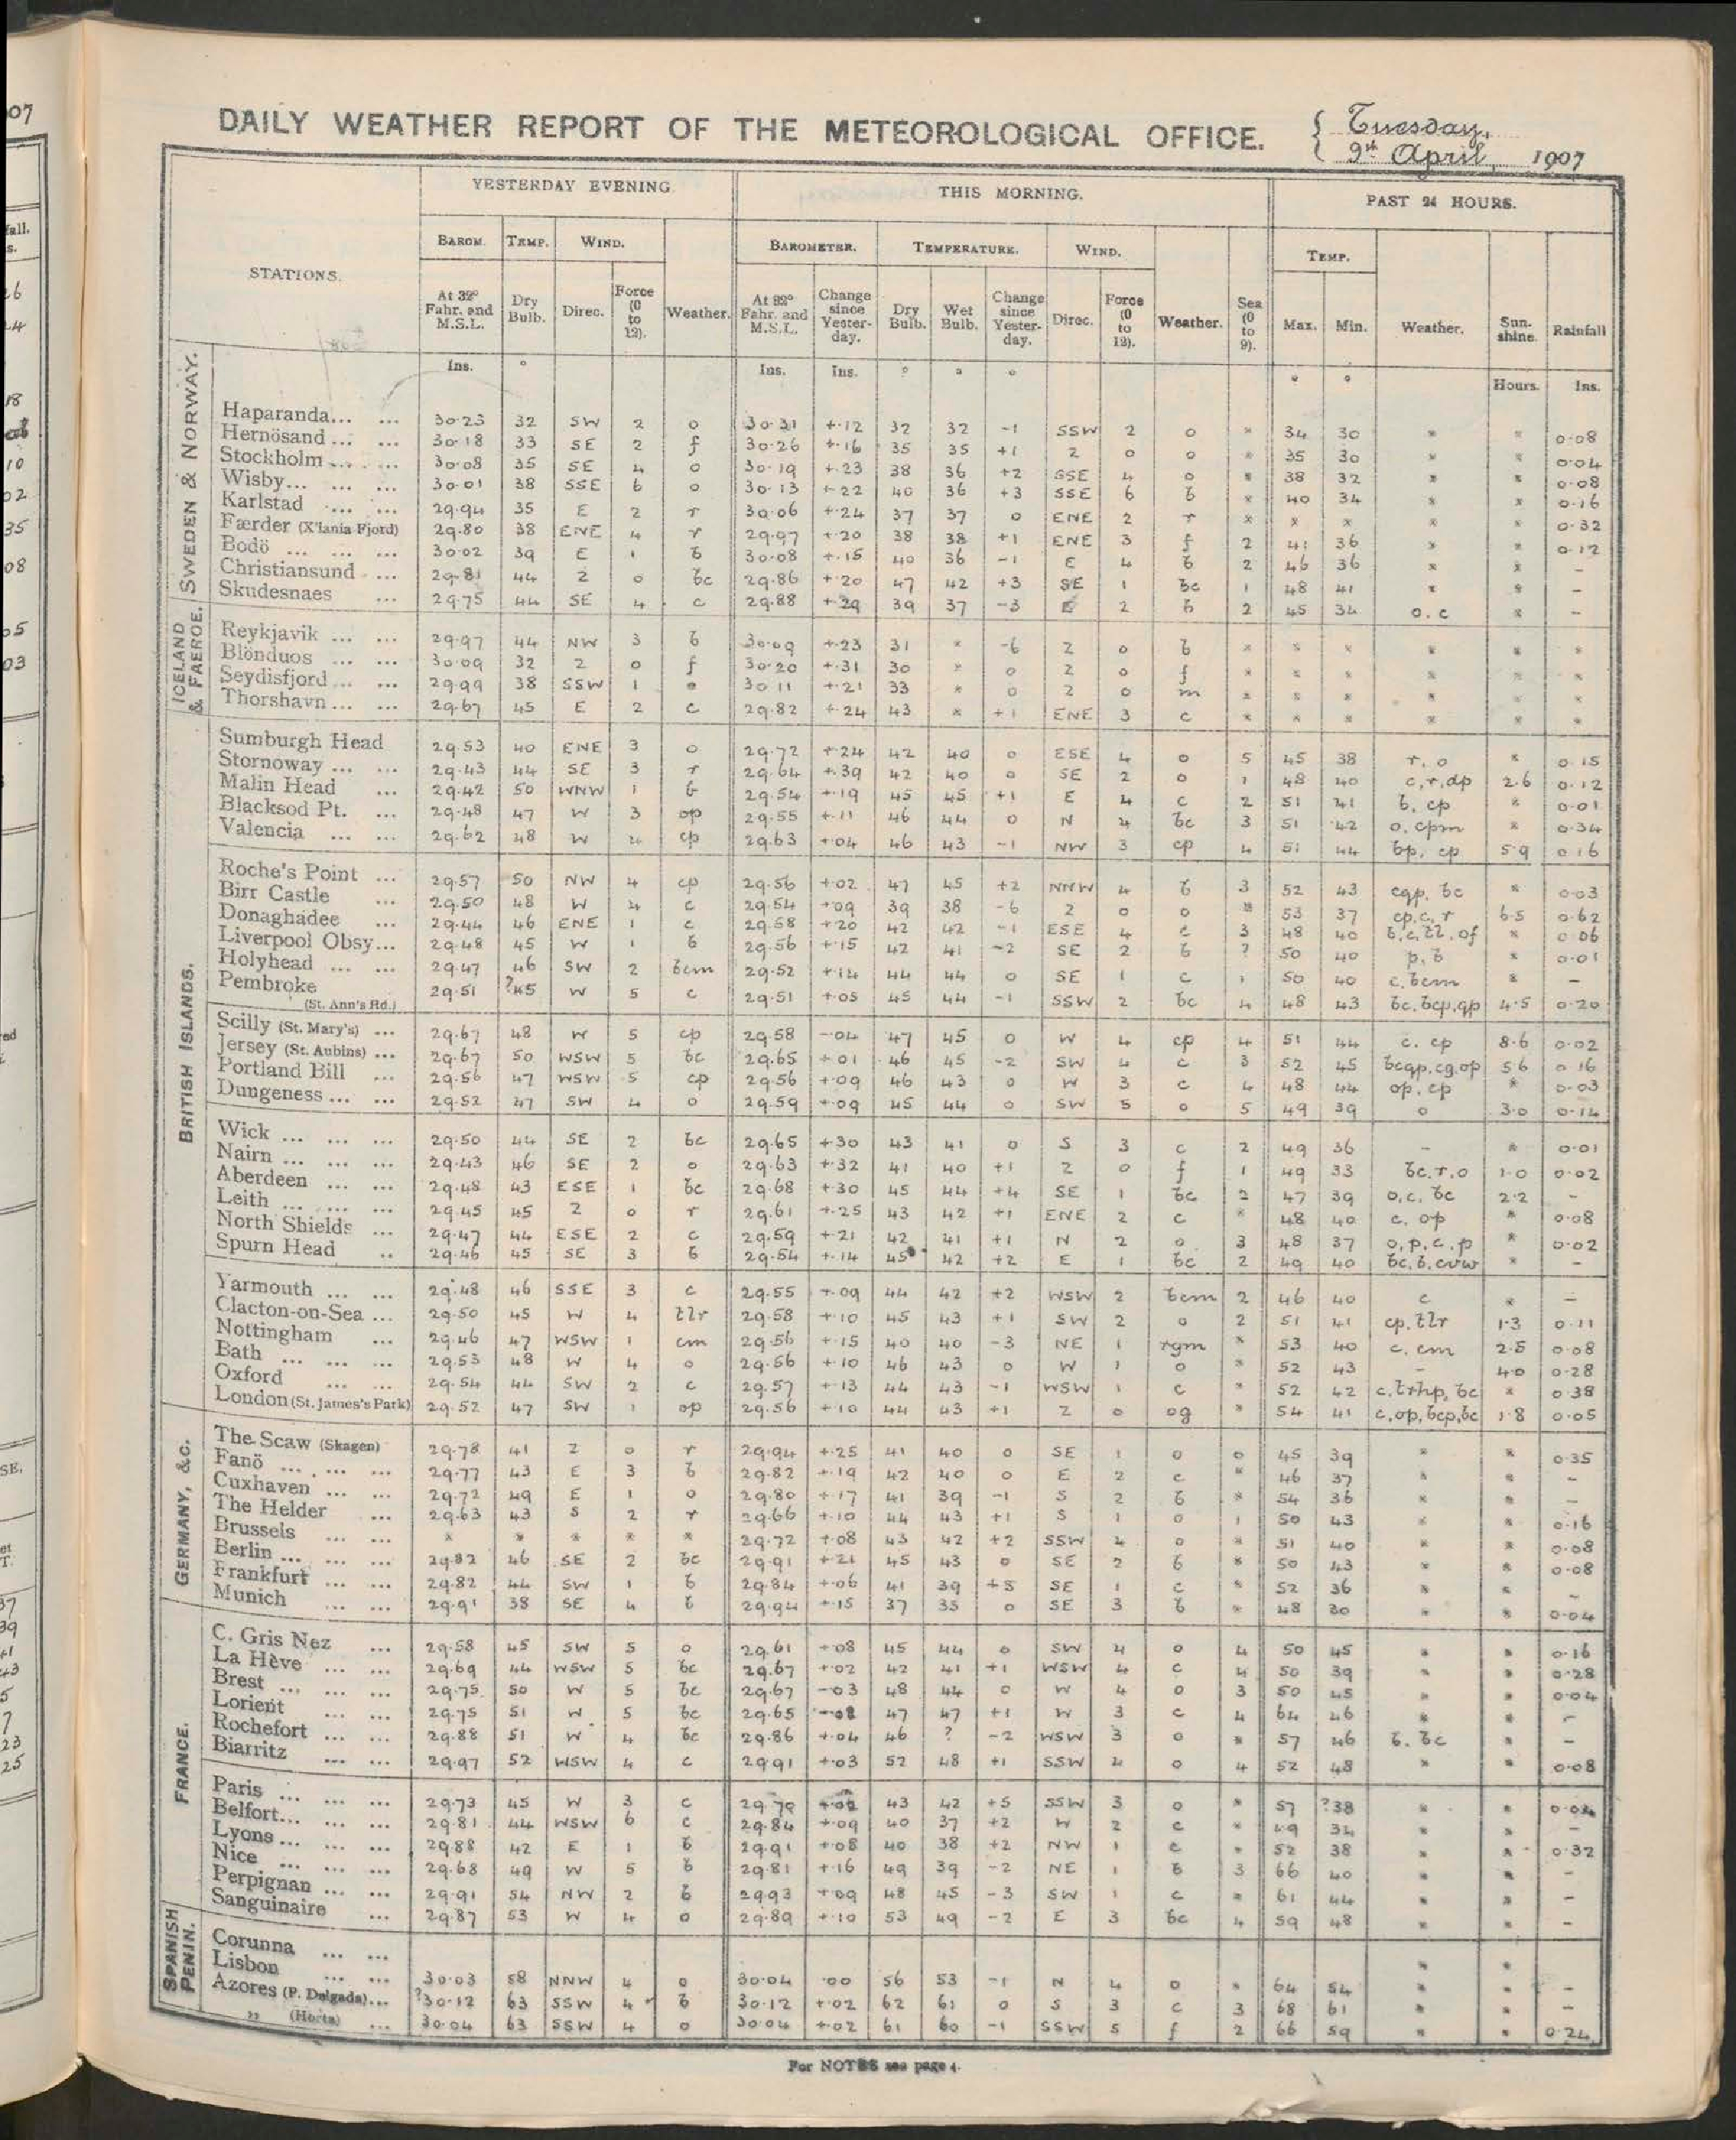 DAILY WEATHER REPORT OF THE METEOROLOGICAL OFFICE. { Tuesday, 9th April, 1907
STATIONS. YESTERDAY EVENING. THIS MORNING. PAST 24 HOURS.
BAROM. TEMP. WIND. Weather. BAROMETER. TEMPERATURE. WIND. Weather. Sea (0 to 9). TEMP. Weather. Sunshine. Rainfall
At 32° Fahr. and M.S.L. Dry Bulb. Direc. Force (0 to 12). At 32° Fahr. and M.S.L. Change since Yesterday. Dry Bulb. Wet Bulb. Change since Yesterday. Direc. Force (0 to 12). Max. Min.
Ins. ° Ins. Ins. ° ° ° ° ° Hours. Ins.
SWEDEN & NORWAY.
Haparanda... ... 30·23 32 SW 2 o 30·31 +·12 32 32 -1 SSW 2 o * 34 30 * * 0·08
Hernösand ... ... 30·18 33 SE 2 f 30·26 +·16 35 35 +1 Z o o * 35 30 * * 0·04
Stockholm ... ... 30·08 35 SE 4 o 30·19 +·23 38 36 +2 SSE 4 o * 38 32 * * 0·08
Wisby... ... ... 30·01 38 SSE 6 o 30·13 +·22 40 36 +3 SSE 6 b * 40 34 * * 0·16
Karlstad ... ... 29·94 35 E 2 r 30·06 +·24 37 37 0 ENE 2 r * * * * * 0·32
Færder (X'iania Fjord) 29·80 38 ENE 4 r 29·97 +·20 38 38 +1 ENE 3 f 2 41 36 * * 0·12
Bodö ... ... ... 30·02 39 E 1 b 30·08 +·15 40 36 -1 E 4 b 2 46 36 * * -
Christiansund ... 29·81 44 Z 0 bc 29·86 +·20 47 42 +3 SE 1 bc 1 48 41 * * -
Skudesnaes ... 29·75 44 SE 4 c 29·88 +·29 39 37 -3 E 2 b 2 45 34 o.c * -
ICELAND & FAEROE.
Reykjavik ... ... 29·97 44 NW 3 b 30·09 +·23 31 * -6 Z o b * * * * * *
Blönduos ... ... 30·09 32 Z 0 f 30·20 +·31 30 * 0 Z o f * * * * * *
Seydisfjord ... ... 29·99 38 SSW 1 o 30·11 +·21 33 * 0 Z 0 m * * * * * *
Thorshavn ... ... 29·67 45 E 2 c 29·82 +·24 43 * +1 ENE 3 c * * * * * *
BRITISH ISLANDS.
Sumburgh Head 29·53 40 ENE 3 o 29·72 +·24 42 40 0 ESE 4 o 5 45 38 r, o * 0·15
Stornoway ... ... 29·43 44 SE 3 r 29·64 +·39 42 40 0 SE 2 o 1 48 40 c,r,dp 2·6 0·12
Malin Head ... 29·42 50 WNW 1 b 29·54 +·19 45 45 +1 E 4 c 2 51 41 b, cp * 0·01
Blacksod Pt. ... 29·48 47 W 3 op 29·55 +·11 46 44 0 N 4 bc 3 51 42 o, cpm * 0·34
Valencia ... ... 29·62 48 W 4 cp 29·63 +·04 46 43 -1 NW 3 cp 4 51 44 bp, cp 5·9 0·16
Roche's Point ... 29·57 50 NW 4 cp 29·56 +·02 47 45 +2 NNW 4 b 3 52 43 cqp, bc * 0·03
Birr Castle ... 29·50 48 W 4 c 29·54 +·09 39 38 -6 Z 0 o * 53 37 cp,c,r 6·5 0·62
Donaghadee ... 29·44 46 ENE 1 c 29·58 +·20 42 42 -1 ESE 4 c 3 48 40 b,c,tl,of * 0·06
Liverpool Obsy... 29·48 45 W 1 b 29·56 +·15 42 41 -2 SE 2 b ? 50 40 p, b * 0·01
Holyhead ... ... 29·47 46 SW 2 bcm 29·52 +·14 44 44 0 SE 1 c 1 50 40 c, bcm * -
Pembroke (St. Ann's Hd.) 29·51 ?45 W 5 c 29·51 +·05 45 44 -1 SSW 2 bc 4 48 43 bc, bcp, qp 4·5 0·20
Scilly (St. Mary's) ... 29·67 48 W 5 cp 29·58 -·04 47 45 0 W 4 cp 4 51 44 c. cp 8·6 0·02
Jersey (St. Aubins) ... 29·67 50 WSW 5 bc 29·65 +·01 46 45 -2 SW 4 c 3 52 45 bcqp, cg, op 5·6 0·16
Portland Bill ... 29·56 47 WSW 5 cp 29·56 +·09 46 43 0 W 3 c 4 48 44 op, cp * 0·03
Dungeness ... ... 29·52 47 SW 4 o 29·59 +·09 45 44 0 SW 5 o 5 49 39 o 3·0 0·14
Wick ... ... ... 29·50 44 SE 2 bc 29·65 +·30 43 41 0 S 3 c 2 49 36 - * 0·01
Nairn ... ... ... 29·43 46 SE 2 o 29·63 +·32 41 40 +1 Z 0 f 1 49 33 bc, r, o 1·0 0·02
Aberdeen ... ... 29·48 43 ESE 1 bc 29·68 +·30 45 44 +4 SE 1 bc 2 47 39 o, c, bc 2·2 -
Leith ... ... ... 29·45 45 Z 0 r 29·61 +·25 43 42 +1 ENE 2 c * 48 40 c. op * 0·08
North Shields ... 29·47 44 ESE 2 c 29·59 +·21 42 41 +1 N 2 o 3 48 37 o, p, c, p * 0·02
Spurn Head .. 29·46 45 SE 3 b 29·54 +·14 45 42 +2 E 1 bc 2 49 40 bc, b, cvw * -
Yarmouth ... ... 29·48 46 SSE 3 c 29·55 +·09 44 42 +2 WSW 2 bcm 2 46 40 c * -
Clacton-on-Sea ... 29·50 45 W 4 tlr 29·58 +·10 45 43 +1 SW 2 o 2 51 41 cp, tlr 1·3 0·11
Nottingham ... 29·46 47 WSW 1 cm 29·56 +·15 40 40 -3 NE 1 rgm * 53 40 c, cm 2·5 0·08
Bath ... ... ... 29·53 48 W 4 o 29·56 +·10 46 43 0 W 1 o * 52 43 - 4·0 0·28
Oxford ... ... 29·54 44 SW 2 c 29·57 +·13 44 43 -1 WSW 1 c * 52 42 c, trhp, bc * 0·38
London (St. James's Park) 29·52 47 SW 1 op 29·56 +·10 44 43 +1 Z 0 og * 54 41 c, op, bcp, bc 1·8 0·05
GERMANY, &c.
The Scaw (Skagen) 29·78 41 Z 0 r 29·94 +·25 41 40 0 SE 1 o 0 45 39 * * 0·35
Fanö ... ... ... 29·77 43 E 3 b 29·82 +·19 42 40 0 E 2 c * 46 37 * * -
Cuxhaven ... ... 29·72 49 E 1 o 29·80 +·17 41 39 -1 S 2 b * 54 36 * * -
The Helder ... 29·63 43 S 2 r 29·66 +·10 44 43 +1 S 1 o 1 50 43 * * 0·16
Brussels ... ... * * * * * 29·72 +·08 43 42 +2 SSW 4 o * 51 40 * * 0·08
Berlin ... ... ... 29·82 46 SE 2 bc 29·91 +·21 45 43 0 SE 2 b * 50 43 * * 0·08
Frankfurt ... ... 29·82 44 SW 1 b 29·84 +·06 41 39 +5 SE 1 c * 52 36 * * -
Munich ... ... 29·91 38 SE 4 b 29·94 +·15 37 35 0 SE 3 b * 48 30 * * 0·04
FRANCE.
C. Gris Nez ... 29·58 45 SW 5 o 29·61 +·08 45 44 0 SW 4 o 4 50 45 * * 0·16
La Hève ... ... 29·69 44 WSW 5 bc 29·67 +·02 42 41 +1 WSW 4 c 4 50 39 * * 0·28
Brest ... ... ... 29·75 50 W 5 bc 29·67 -·03 48 44 0 W 4 o 3 50 45 * * 0·04
Lorient ... ... 29·75 51 W 5 bc 29·65 -·08 47 47 +1 W 3 c 4 64 46 * * -
Rochefort ... ... 29·88 51 W 4 bc 29·86 +·04 46 ? -2 WSW 3 o * 57 46 b. bc * -
Biarritz ... ... 29·97 52 WSW 4 c 29·91 +·03 52 48 +1 SSW 4 o 4 52 48 * * 0·08
Paris ... ... ... 29·73 45 W 3 c 29·70 +·02 43 42 +5 SSW 3 o * 57 ?38 * * 0·04
Belfort... ... ... 29·81 44 WSW 6 c 29·84 +·09 40 37 +2 W 2 c * 49 34 * * -
Lyons ... ... ... 29·88 42 E 1 b 29·91 +·08 40 38 +2 NW 1 c * 52 38 * * 0·32
Nice ... ... ... 29·68 49 W 5 b 29·81 +·16 49 39 -2 NE 1 b 3 66 40 * * -
Perpignan ... ... 29·91 54 NW 2 b 29·93 +·09 48 45 -3 SW 1 c * 61 44 * * -
Sanguinaire ... 29·87 53 W 4 o 29·89 +·10 53 49 -2 E 3 bc 4 59 48 * * -
SPANISH PENIN.
Corunna ... ... * *
Lisbon ... ... 30·03 58 NNW 4 o 30·04 ·00 56 53 -1 N 4 o * 64 54 * * -
Azores (P. Delgada)... ?30·12 63 SSW 4 b 30·12 +·02 62 61 0 S 3 c 3 68 61 * * -
" (Horta) ... 30·04 63 SSW 4 o 30·04 +·02 61 60 -1 SSW 5 f 2 66 59 * * 0·24
For NOTES see page 4.